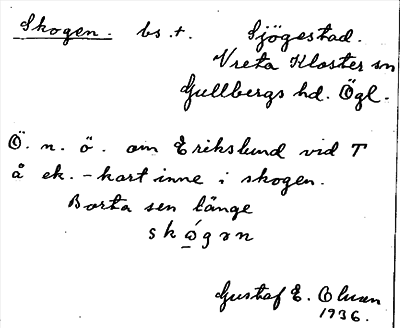 Skogen. bs.t. Sjögestad.
Vreta Kloster sn
Gullbergs hd. Ögl.
Ö. n. ö. om Erikslund vid T
å ek. - kart inne i skogen.
Borta sen länge
skǫ́gən
Gustaf E. Olman
1936.